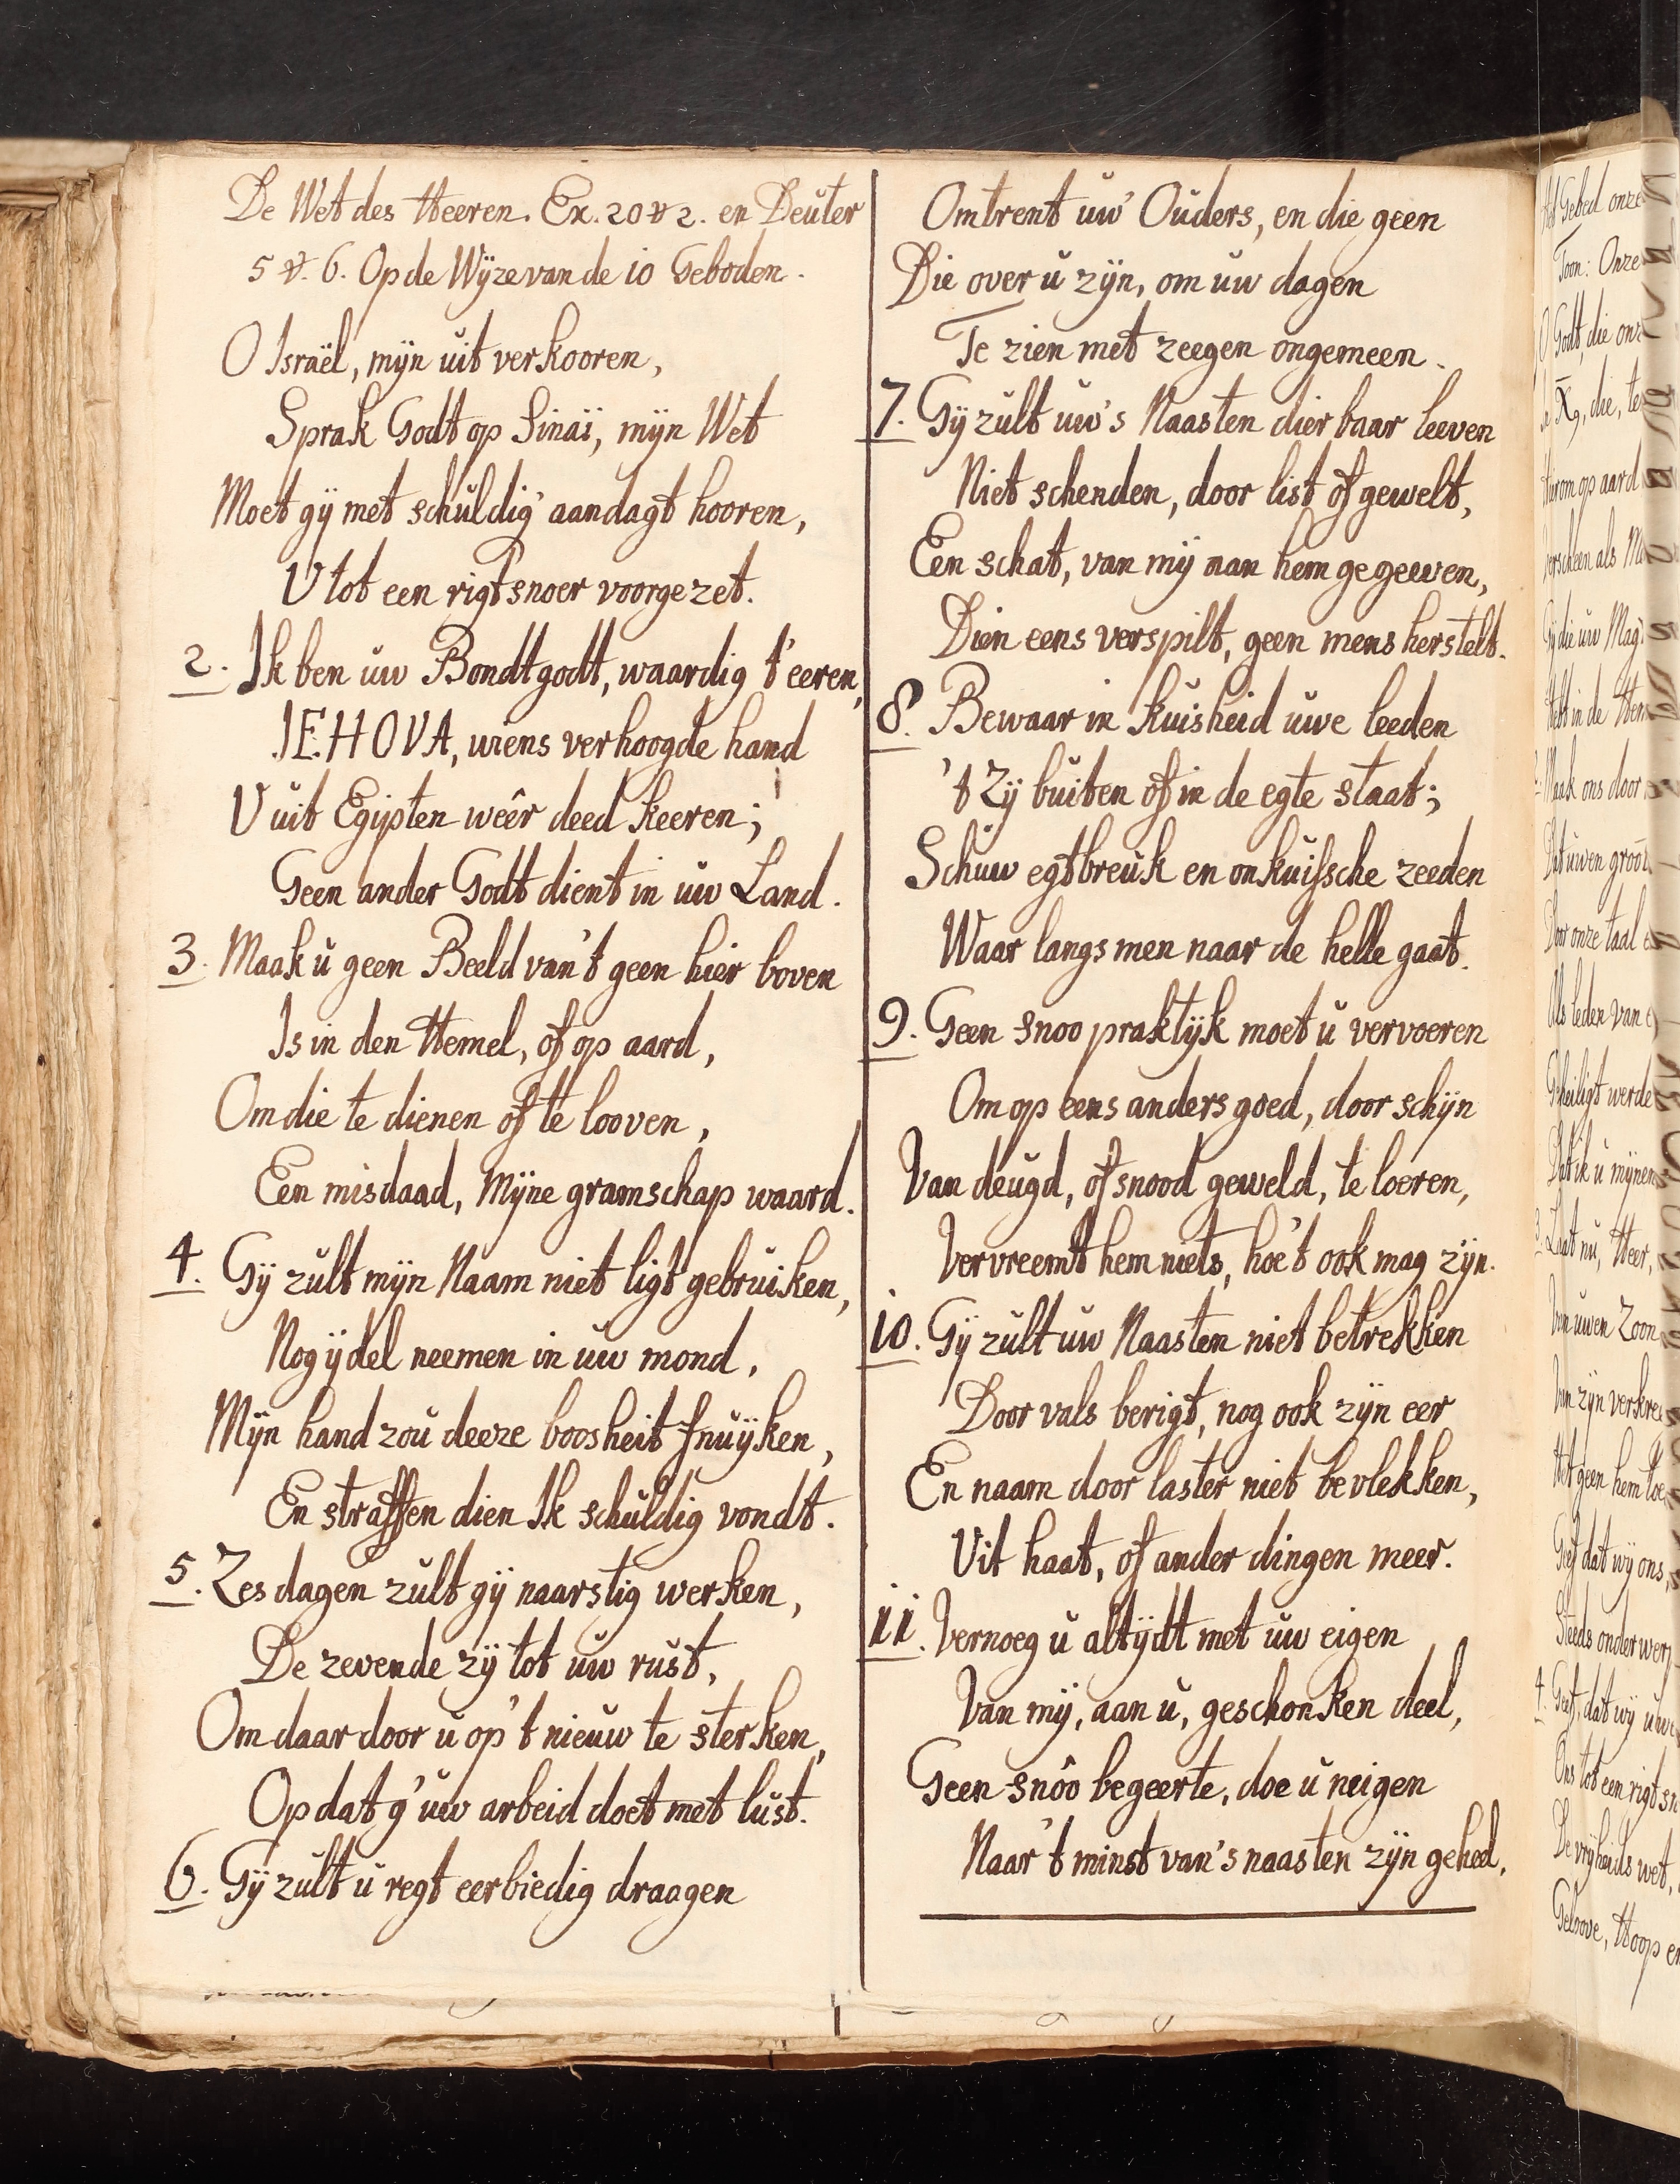 De Wet des Heeren. Ex. 20 v 2. en Deuter
5 v. 6. Op de Wÿze van de 10 Geboden.
O Israël, mÿn uit verkooren,
Sprak Godt op Sinaï, mÿn Wet
Moet gÿ met schuldig' aandagt hooren,
U tot een rigtsnoer voorgezet.
2. Ik ben uw Bondtgodt, waardig t'eeren,
JEHOVA, wiens verhoogde hand
U uit Egijpten weêr deed keeren;
Geen ander Godt dient in uw Land.
3. Maak u geen Beeld van't geen hier boven
Is in den Hemel, of op aard,
Om die te dienen of te looven,
Een misdaad, Mÿne gramschap waard.
4. Gÿ zult mÿn Naam niet ligt gebruiken,
Nog ÿdel neemen in uw mond,
Mÿn hand zou deeze boosheit fnuÿken,
En straffen dien Ik schuldig vondt.
5. Zes dagen zult gÿ naarstig werken,
De zevende zÿ tot uw rust,
Om daar door u op't nieuw te sterken,
Op dat g'uw arbeid doet met lust.
6. Gÿ zult u regt eerbiedig draagen
Omtrent uw' Ouders, en die geen
Die over u zÿn, om uw dagen
Te zien met zeegen ongemeen.
7. Gÿ zult uw's Naasten dierbaar leeven
Niet schenden, door list of gewelt,
Een schat, van mÿ aan hem gegeeven,
Dien eens verspilt, geen mens herstelt.
8. Bewaar in kuisheid uwe leeden
't Zÿ buiten of in de egte staat;
Schuw egtbreuk en onkuissche zeeden
Waar langs men naar de helle gaat.
9. Geen snoo praktÿk moet u vervoeren
Om op eens anders goed, door schÿn
Van deugd, of snood geweld, te loeren,
Vervreemt hem niets, hoe't ook mag zÿn.
10. Gÿ zult uw Naasten niet betrekken
Door vals berigt, nog ook zÿn eer
En naam door laster niet bevlekken,
Uit haat, of ander dingen meer.
11. Vernoeg u altÿdt met uw eigen
Van mÿ, aan u, geschonken deel,
Geen snôo begeerte, doe u neigen
Naar't minst van's naasten zÿn geheel.
Gebed onze
Toon: Onze
O Godt, die
die, te
op aard
verscheen als
Gÿ die uw
in de
Maak ons door
uwen
Door onze taal
Als leden van
Geheiligt werde
Dat ik u mÿnen
3. Laat nu, Heer,
Van uwen Zoon
Van zÿn
Het geen hem toe
Geef dat wÿ ons,
Steeds onderwerp
4. Geef, dat wÿ uw
Ons tot een rigtsn
De vrÿheids wet,
Geloove, Hoop en